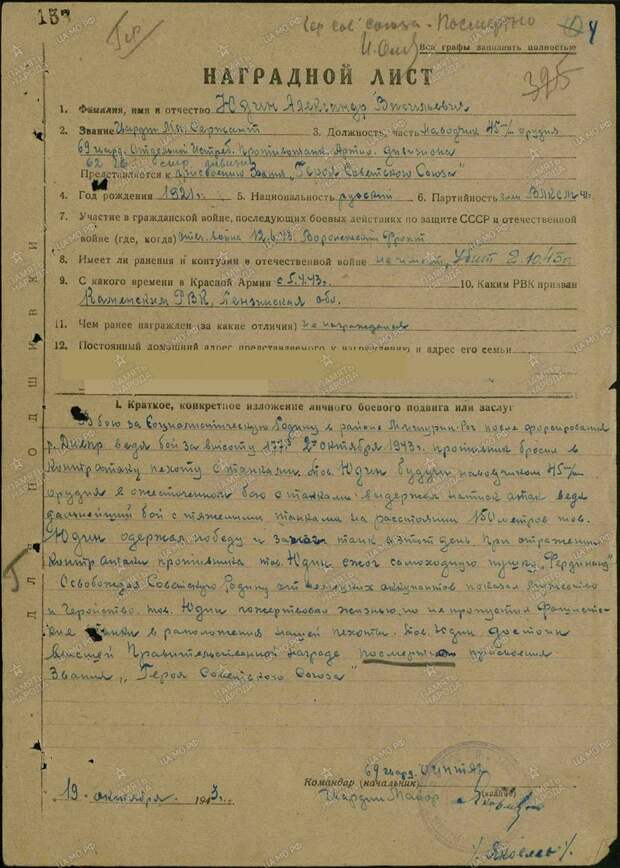 Гер сов союза - Посмертно
157
4
Все графы заполнять полностью
НАГРАДНОЙ ЛИСТ
395
1. Фамилия, имя и отчество Юдин Александр Васильевич
2. Звание Гвардии Мл. Сержант 3. Должность, часть Наводчик 45 м/м орудия
69 гвард. Отдельный Истреб. Противотанк. Артил. дивизиона
62 гв. стр. дивизии
Представляется к присвоению звания "Героя Советского Союза"
4. Год рождения 1921 г. 5. Национальность русский 6. Партийность член ВЛКСМ
7. Участие в гражданской войне, последующих боевых действиях по защите СССР и отечественной
войне (где, когда) Отеч. война 12.6.43. Воронежский Фронт
8. Имеет ли ранения и контузии в отечественной войне не имеет, Убит 2.10.43 г.
9. С какого времени в Красной Армии с 5.4.43 г. 10. Каким РВК призван
Каменским РВК, Пензинская обл.
11. Чем ранее награжден (за какие отличия) не награждался
12. Постоянный домашний адрес представляемого к награждению и адрес его семьи
ДЛЯ ПОДШИВКИ
I. Краткое, конкретное изложение личного боевого подвига или заслуг
В бою за Социалистическую Родину в районе Мишурин-Рог после форсирования
р. Днепр ведя бой за высоту 177, 2 октября 1943 г. противник бросил в
контратаку пехоту с танками. тов. Юдин будучи наводчиком 45 м/м
орудия в ожесточенном бою с танками выдержал натиск атак ведя
дальнейший бой с тяжелыми танками на расстоянии 150 метров тов.
Юдин одержал победу и зажог танк в этот день при отражении
контратаки противника тов. Юдин сжог самоходную пушку "Фердинанд"
Освобождая Советскую Родину от немецких аккупантов показал мужество
и геройство. тов. Юдин пожертвовал жизнью, но не пропустил фашистс-
кие танки в раположения нашей пехоты. Тов. Юдин достоин
высшей Правительственной награде посмертно присвоения
Звания "Героя Советского Союза"
69 гвард. ОИПТАД
Командир (начальник)
Гвардии Майор
(подпись)
19 октября 1943 г.
/Яковлев/.
ЦАМО.РФ
ПАМЯТЬ НАРОДА